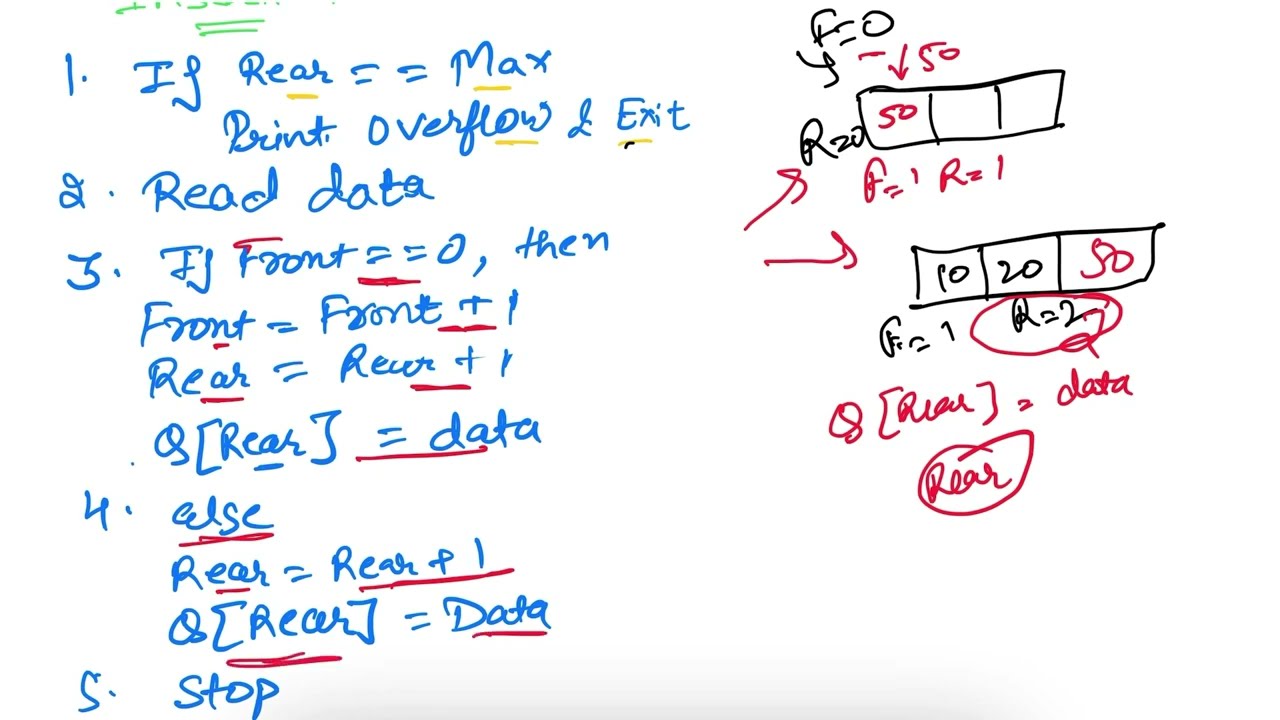 1. If Rear == Max
Print Overflow & Exit
2. Read data
3. If Front == 0, then
Front = Front + 1
Rear = Rear + 1
Q[Rear] = data
4. else
Rear = Rear + 1
Q[Rear] = Data
5. Stop
F=0
50
50
R=0
F=1 R=1
10 20 50
F=1 R=2
Q[Rear] = data
Rear